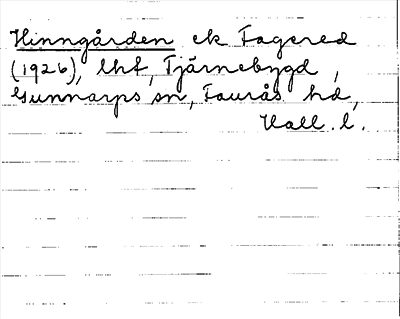 Hinngården ek Fagered
(1926), lht, Tjärnebygd,
Gunnarps sn, Faurås hd,
Hall. l.